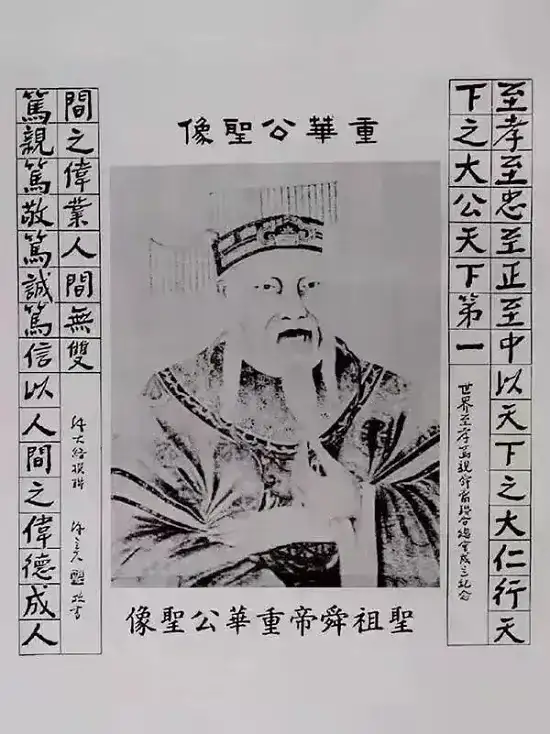 重華公聖像
至孝至忠至正至中以天下之大仁行天
下之大公天下第一
世界至孝篤親舜裔聯合總會成立紀念
篤親篤敬篤誠篤信以人間之偉德成人
間之偉業人間無雙
聖祖舜帝重華公聖像